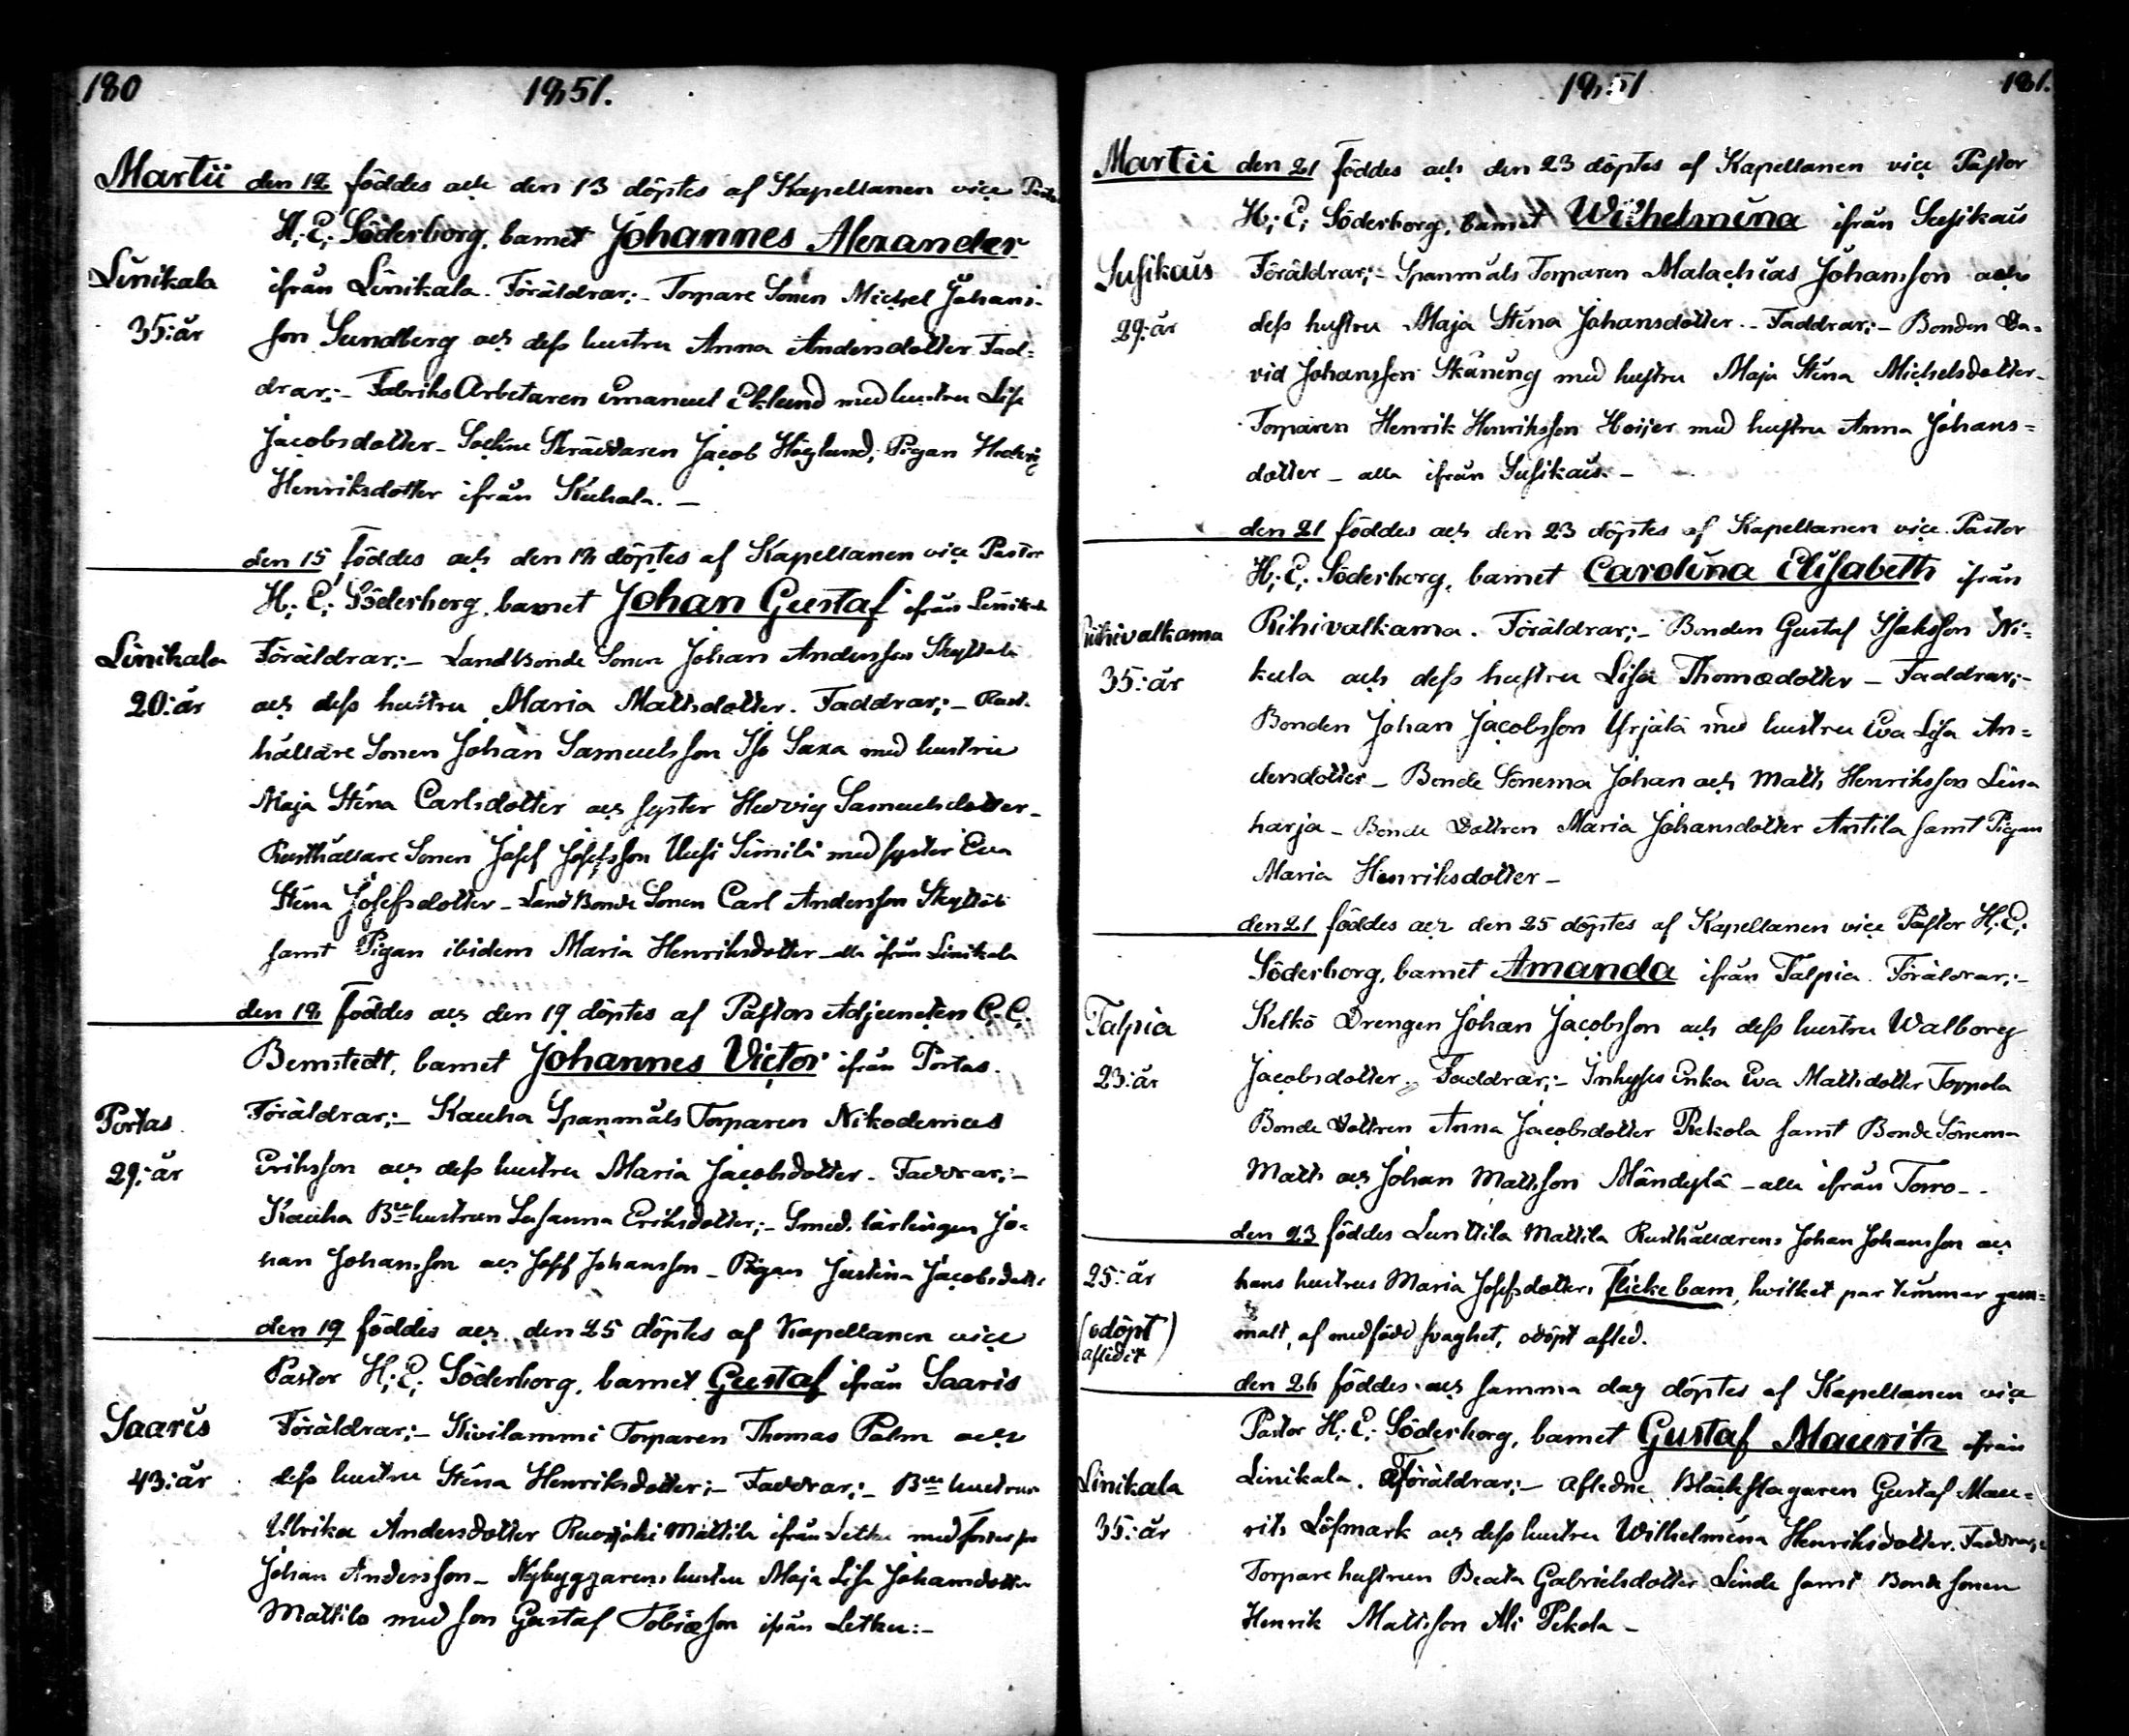 180
1851.
Martii den 12 föddes och den 13 döptes af Kapellanen vice Pastor
H: E: Söderborg, barnet Johannes Alexander
Linikala
ifrån Linikala. Föräldrar;- Torpare Sonen Michel Johans-
35: år
son Sundberg och dess hustru Anna Andersdotter Fad=
drar;- Fabriks Arbetaren Emanuel Eklund med hustru Lisa
Jacobsdotter- Sockne Skräddaren Jacob Höglund, Pigan Hedvig
Henriksdotter ifrån Kuhala. -
den 15 föddes och den döptes af Kapellanen vice Pastor
H: E: Söderborg, barnet Johan Gustaf ifrån Linikala
Linikala
Föräldrar;- LandBonde Sonen Johan Andersson Skyttälä
20: år
och dess hustru Maria Mattsdotter. Faddrar;- Rust-
hållare Sonen Johan Samuelsson Iso Saxa med hustru
Maja Stina Carlsdotter och syster Hedvig Samuelsdotter-
Rusthållare Sonen Josef Josefsson Uusi Simila med syster Eva
Stina Josefsdotter - Land Bonde Sonen Carl Andersson Skyttälä
samt Pigan ibidem Maria Henriksdotter - alla ifrån Linikala
den 18 föddes och den 19 döptes af Pastors Adjuncten C: C:
Bernstedt, barnet Johannes Victor ifrån Portas.
Portas
Föräldrar;- Kauha Spanmåls Torparen Nikodemus
29: år
Eriksson och dess hustru Maria Jacobsdotter- Faddrar;-
Kauha Bde hustrun Susanna Eriksdotter;- Smeds lärlingen Jo-
han Johansson och Josef Johansson - Pigan Justina Jacobsdotter
den 19 föddes och den 25 döptes af Kapellanen vice
Pastor H: E: Söderborg, barnet Gustaf ifrån Saaris
Saaris
Föräldrar;- Kivilammi Torparen Thomas Palm och
43: år
dess hustru Stina Henriksdotter;- Faddrar;- Bde hustrun
Ulrika Andersdotter Ruosjoki Mattila ifrån Letku med
Johan Andersson - Nybyggarens hustru Maja Lisa Johansdotter
Mattila med son Gustaf Tobiæson ifrån Letku:-
1851
181.
Martii den 21 föddes och den 23 döptes af Kapellanen vice Pastor
H: E: Söderborg, barnet Wilhelmina ifrån Susikais
Susikais
Föräldrar;- Spanmåls Torparen Malachias Johansson och
29: år
dess hustru Maja Stina Johansdotter.- Faddrar;- Bonden Da=
vid Johansson Skäning med hustru Maja Stina Michelsdotter-
Torparen Henrik Henriksson Hoijer med hustru Anna Johans=
dotter - alla ifrån Susikais.-
den 21 föddes och den 23 döptes af Kapellanen vice Pastor
H: E: Söderborg, barnet Carolina Elisabeth ifrån
Rihivalkama
Rihivalkama. Föräldrar;- Bonden Gustaf Isaksson Ni=
35: år
kula och dess hustru Lisa Thomædotter - Faddrar;-
Bonden Johan Jacobsson Yrjälä med hustru Eva Lisa An=
dersdotter - Bonde Sönerna Johan och Matts Henriksson Lina
harja - Bonde Dottren Maria Johansdotter Antila samt Pigan
Maria Henriksdotter -
den 21 föddes och den 25 döptes af Kapellanen vice Pastor H: E:
Söderborg, barnet Amanda ifrån Talpia. Föräldrar;-
Talpia
Kelkö Drengen Johan Jacobsson och dess hustru Walborg
23: år
Jacobsdotter. Faddrar;- Inhyses Enka Eva Mattsdotter Toppola
Bonde Dottren Anna Jacobsdotter Pekola samt Bonde Sönerna
Matts och Johan Mattsson Mändylä - alla ifrån Torro - -
den 23 föddes Lunttila Mattila Rusthållarens Johan Johansson och
25: år
hans hustrus Maria Josefsdotters flicke barn, hvilket par timmar gam=
(odöpt
aflidit)
malt, af medfödd svaghet, odöpt afled.
den 26 föddes och samma dag döptes af Kapellanen vice
Pastor H: E: Söderborg, barnet Gustaf Mauritz ifrån
Linikala
Linikala. Föräldrar;- Aflidne Bläckslagaren Gustaf Mau=
35: år
rits Löfmark och dess hustru Wilhelmina Henriksdotter. Faddrar;-
Torpare hustrun Beata Gabrielsdotter Linde samt Bonde sonen
Henrik Mattsson Ali Pekola -